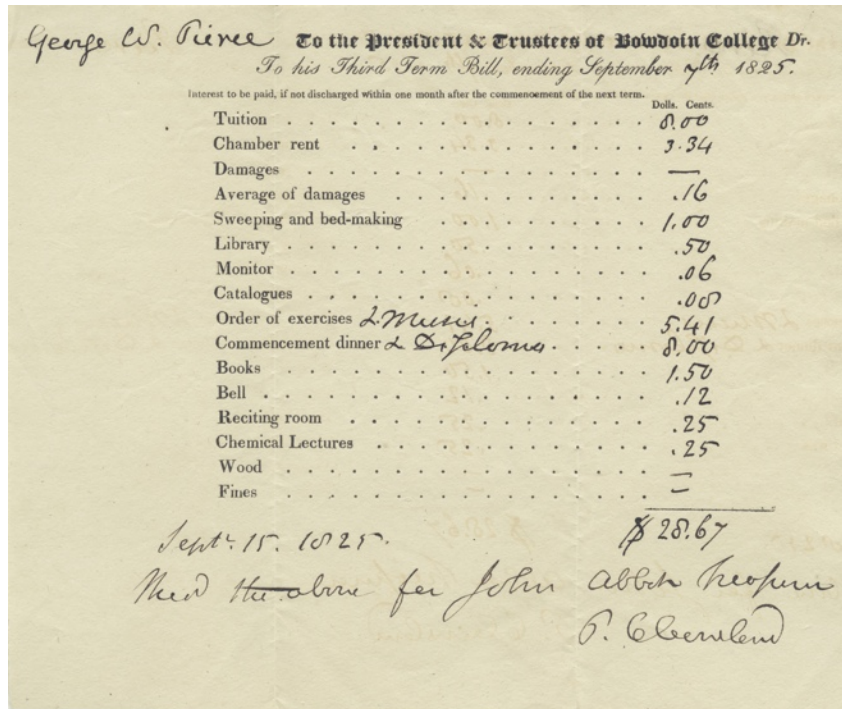 George W. Pierce To the President & Trustees of Bowdoin College Dr.
To his Third Term Bill, ending September 7th 1825.
Interest to be paid, if not discharged within one month after the commencement of the next term.
Dolls. Cents.
Tuition . . . . . . . . . . . . . . . . 8.00
Chamber rent . . . . . . . . . . . . . 3.34
Damages . . . . . . . . . . . . . . . —
Average of damages . . . . . . . . . . . .16
Sweeping and bed-making . . . . . . . . . 1.00
Library . . . . . . . . . . . . . . . . .50
Monitor . . . . . . . . . . . . . . . . .06
Catalogues . . . . . . . . . . . . . . . .08
Order of exercises & Music . . . . . . . 5.41
Commencement dinner & Diploma . . . . . 8.00
Books . . . . . . . . . . . . . . . . 1.50
Bell . . . . . . . . . . . . . . . . . .12
Reciting room . . . . . . . . . . . . . .25
Chemical Lectures . . . . . . . . . . . .25
Wood . . . . . . . . . . . . . . . . —
Fines . . . . . . . . . . . . . . . . —
Sept. 15. 1825. $ 28.67
the above for John Abbot
P. Cleaveland